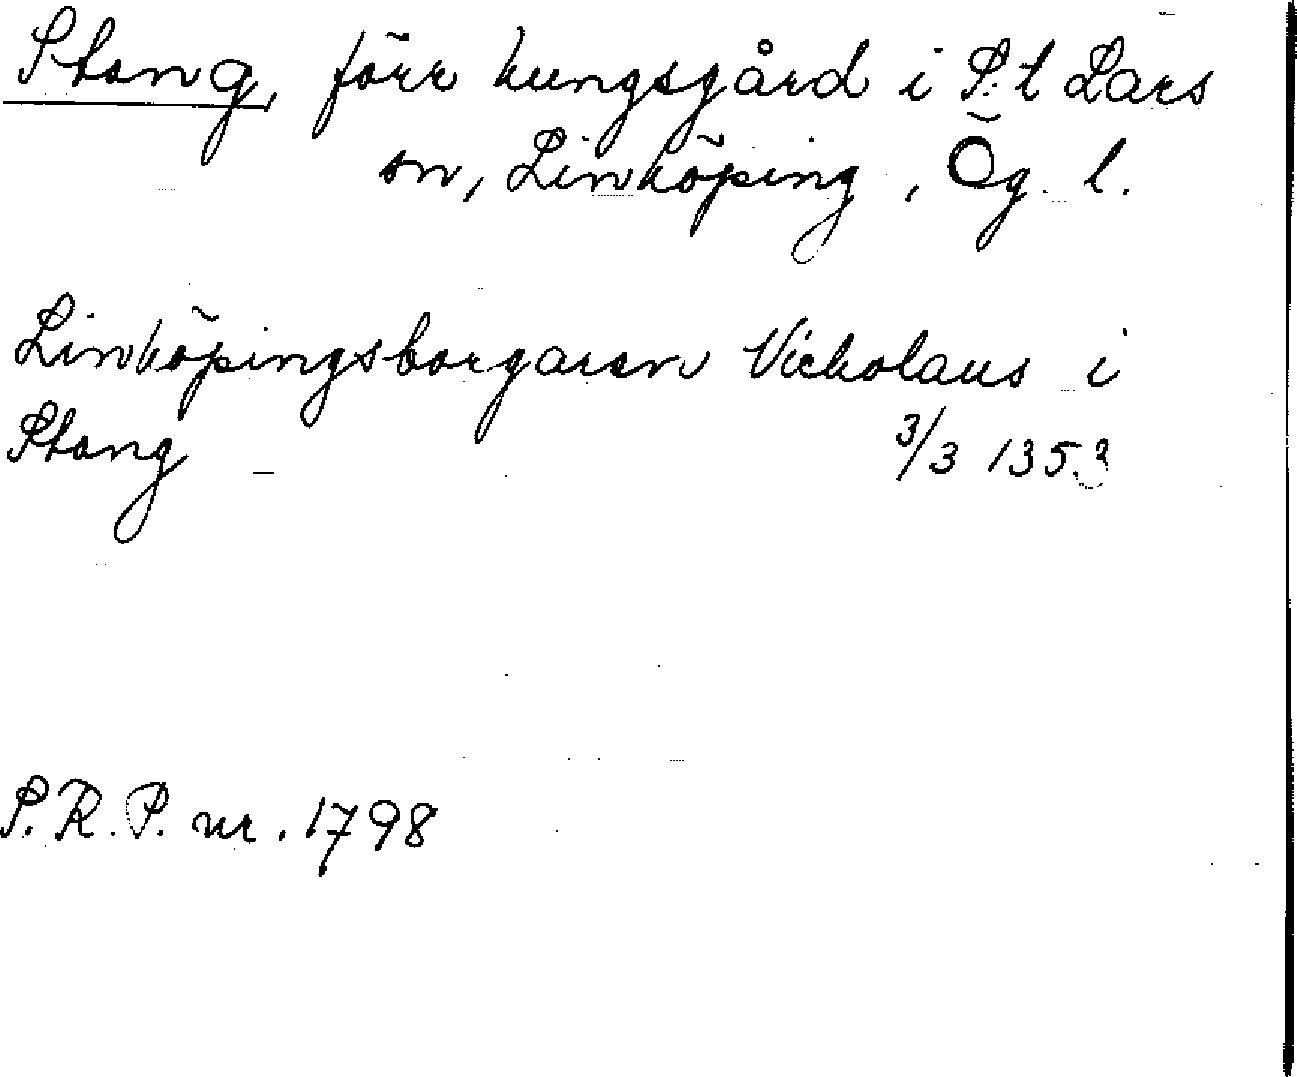 Stang, förr kungsgård i S:t Lars
sn, Linköping, Ög. l.
Linköpingsborgaren Nicholaus i
Stang 3/3 1353
S.R.P. nr. 1798